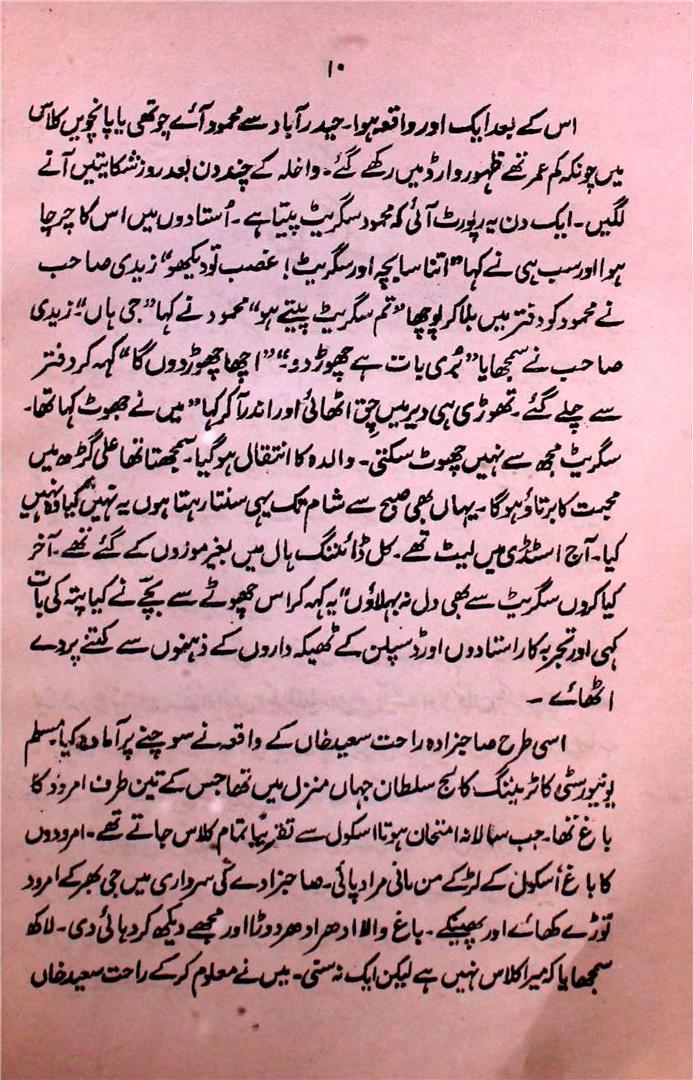 ۱۰
اس کے بعد ایک اور واقعہ ہوا۔ حیدر آباد سے محمود آئے چوتھی یا پانچویں کلاس
میں چونکہ کم عمر تھے ظہور وارڈ میں رکھے گئے۔ داخلہ کے چند دن بعد روز شکایتیں آنے
لگیں۔ ایک دن یہ رپورٹ آئی کہ محمود سگریٹ پیتا ہے۔ اُستادوں میں اس کا چرچا
ہوا اور سب ہی نے کہا "اتنا سا بچہ اور سگریٹ! غضب تو دیکھو" زیدی صاحب
نے محمود کو دفتر میں بلا کر پوچھا "تم سگریٹ پیتے ہو" محمود نے کہا "جی ہاں" زیدی
صاحب نے سمجھایا "بُری بات ہے چھوڑ دو۔" "اچھا چھوڑ دوں گا" کہہ کر دفتر
سے چلے گئے۔ تھوڑی ہی دیر میں چق اٹھائی اور اندر آ کر کہا "میں نے جھوٹ کہا تھا۔
سگریٹ مجھ سے نہیں چھوٹ سکتی۔ والدہ کا انتقال ہو گیا۔ سمجھتا تھا علی گڑھ میں
محبت کا برتاؤ ہو گا۔ یہاں بھی صبح سے شام تک یہی سنتا رہتا ہوں یہ نہیں کیا وہ نہیں
کیا۔ آج اسٹڈی میں لیٹ تھے۔ کل ڈائننگ ہال میں بغیر موزوں کے گئے تھے۔ آخر
کیا کروں سگریٹ سے بھی دل نہ بہلاؤں" یہ کہہ کر اس چھوٹے سے بچّے نے کیا پتہ کی بات
کہی اور تجربہ کار استادوں اور ڈسپلن کے ٹھیکہ داروں کے ذہنوں سے کتنے پردے
اٹھائے۔
اسی طرح صاحبزادہ راحت سعید خاں کے واقعہ نے سوچنے پر آمادہ کیا۔ مسلم
یونیورسٹی کا ٹریننگ کالج سلطان جہاں منزل میں تھا جس کے تین طرف امرود کا
باغ تھا۔ جب سالانہ امتحان ہوتا اسکول سے تقریباً تمام کلاس جاتے تھے۔ امرودوں
کا باغ اُسکول کے لڑکے من مانی مراد پائی۔ صاحبزادے کی سرواری میں جی بھر کے امرود
توڑے کھائے اور پھینکے۔ باغ والا ادھر ادھر دوڑا اور مجھے دیکھ کر دہائی دی۔ لاکھ
سمجھایا کہ میرا کلاس نہیں ہے لیکن ایک نہ سنی۔ میں نے معلوم کر کے راحت سعید خاں